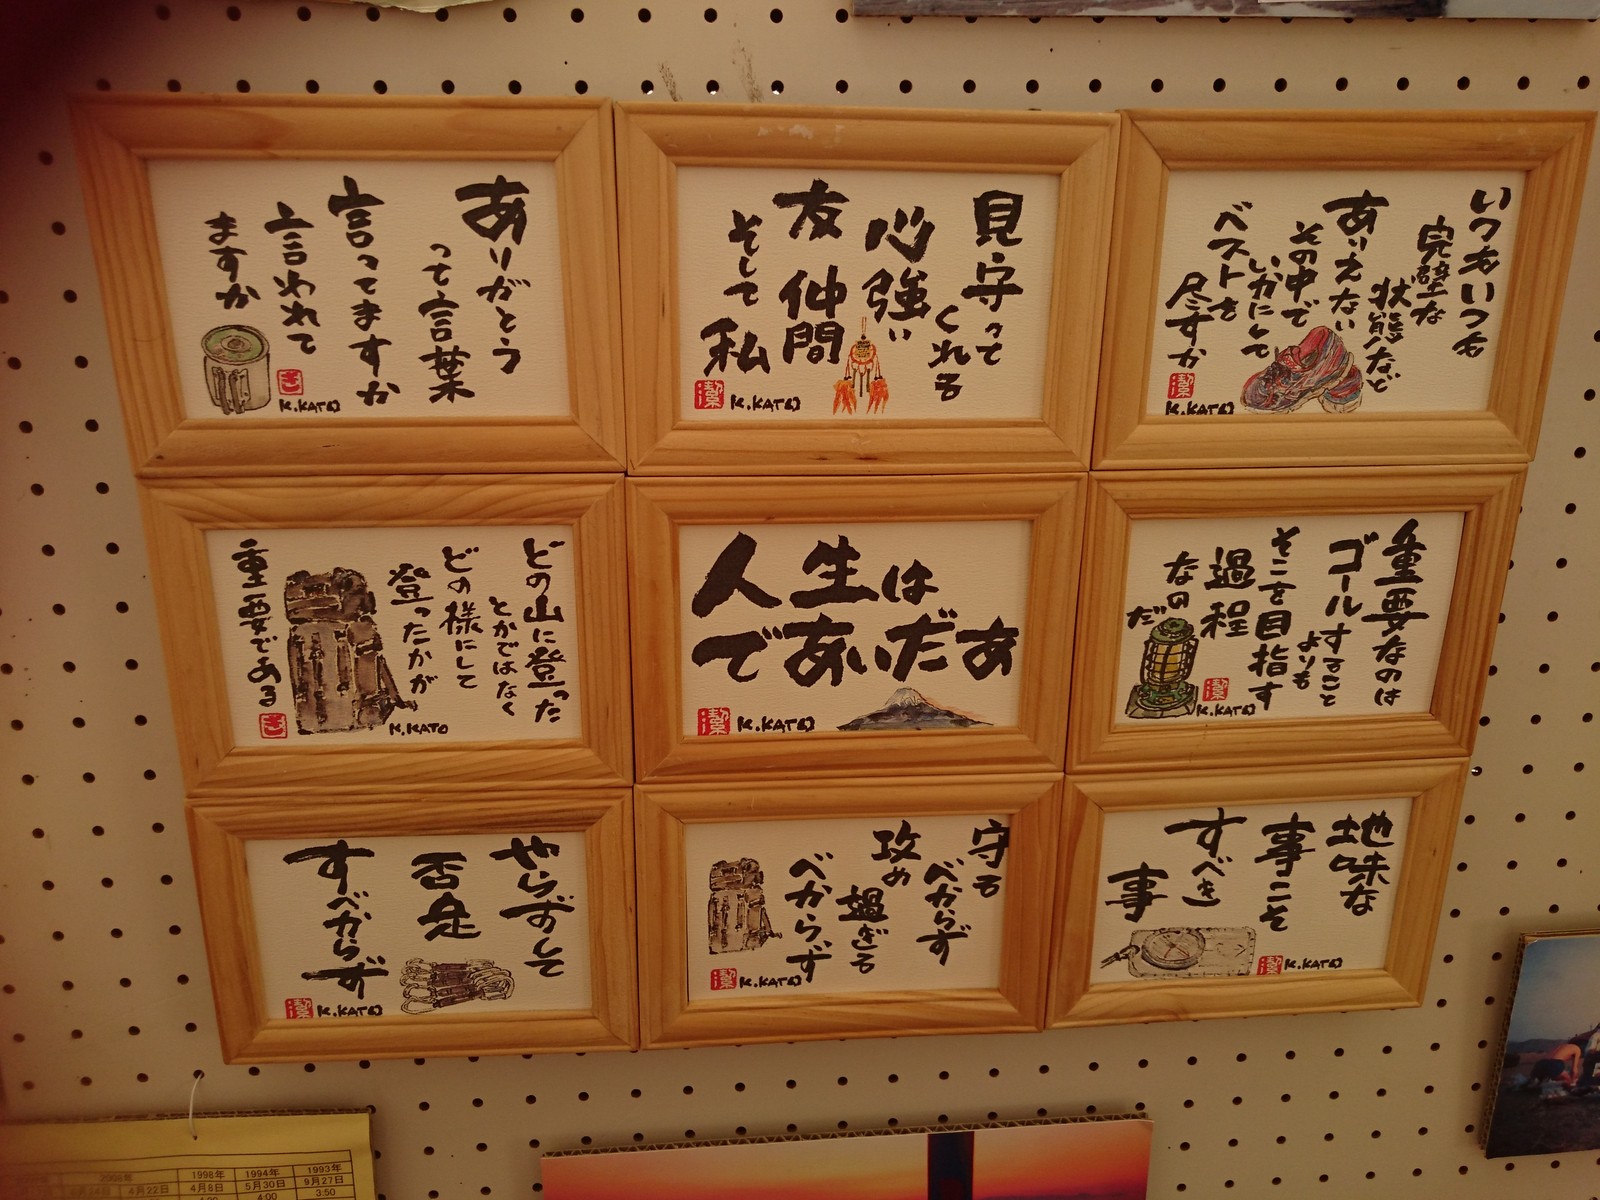 ありがとう
って言葉
言ってますか
言われて
ますか
K.KATO
見守って
くれる
心強い
友 仲間
そして 私
潔
K.KATO
いつもいつも
完璧な
状態など
ありえない
その中で
いかにして
ベストを
尽すか
潔
K.KATO
どの山に登った
とかではなく
どの様にして
登ったかが
重要である
K.KATO
人生は
であいだぁ
潔
K.KATO
重要なのは
ゴールすること
よりも
そこを目指す
過程
なの
だ
潔
K.KATO
やらずして
否定
すべからず
潔
K.KATO
守る
べからず
攻め
過ぎる
べからず
潔
K.KATO
地味な
事こそ
すべき
事
潔
K.KATO
1998年 1994年 1993年
4月22日 4月8日 5月30日 9月27日
4:00 3:50